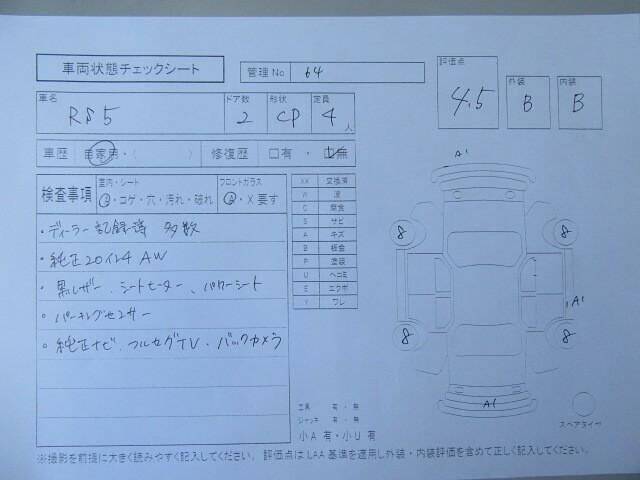 車両状態チェックシート
管理No 64
評価点 4.5
外装 B
内装 B
車名 RS5
ドア数 2
形状 CP
定員 4 人
車歴 自家用・( )
修復歴 口有・口無
検査事項
室内・シート
・コゲ・穴・汚れ・破れ
フロントガラス
・X要す
・ディーラー記録簿 多数
・純正20インチAW
・黒レザー、シートヒーター、パワーシート
・パーキングセンサー
・純正ナビ・フルセグTV・バックカメラ
XX 交換済
W 波
C 腐食
S サビ
A キズ
B 板金
P 塗装
U ヘコミ
E エクボ
Y ワレ
A1
8
8
A1
8
8
A1
工具 有・無
ジャッキ 有・無
小A 有・小U 有
スペアタイヤ
※撮影を前提に大きく読みやすく記入してください。評価点はLAA基準を適用し外装・内装評価を含めて正しく記入してください。